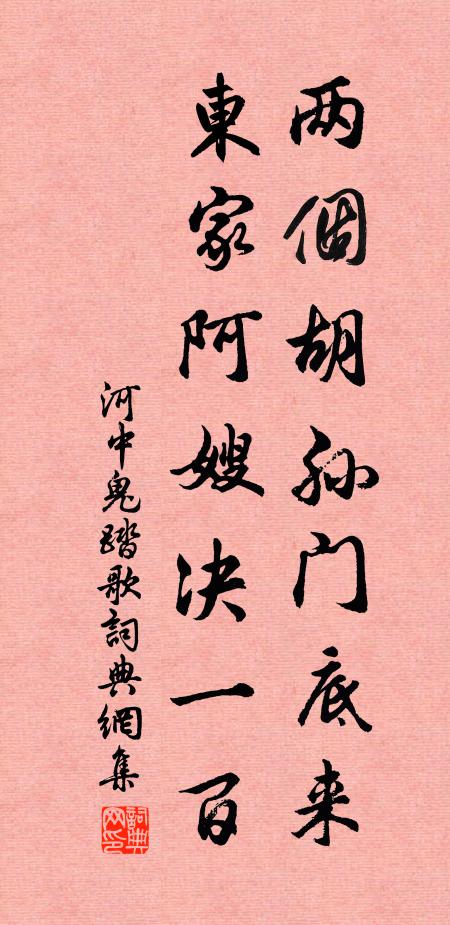 两個胡孙门底来
東家阿嫂决一百
河中鬼踏歌詞典網集
詞典网印